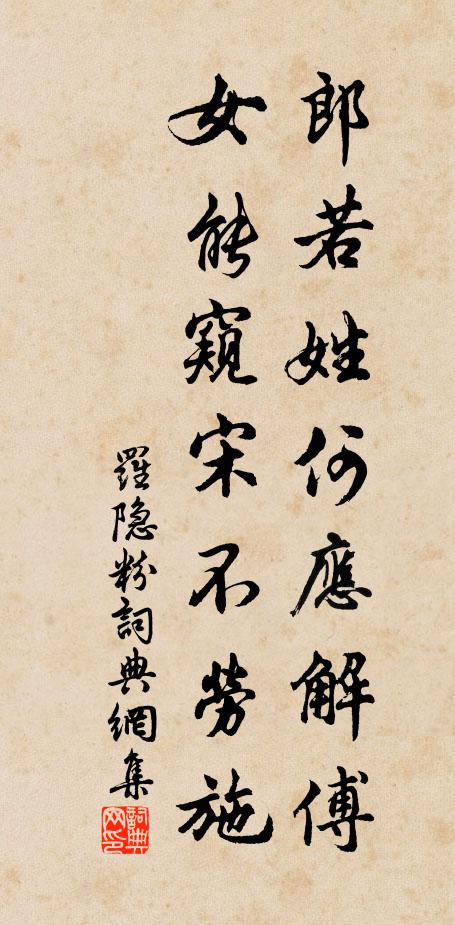 郎若姓何應解傅
女能窺宋不勞施
羅隐粉詞典網集
詞典網印